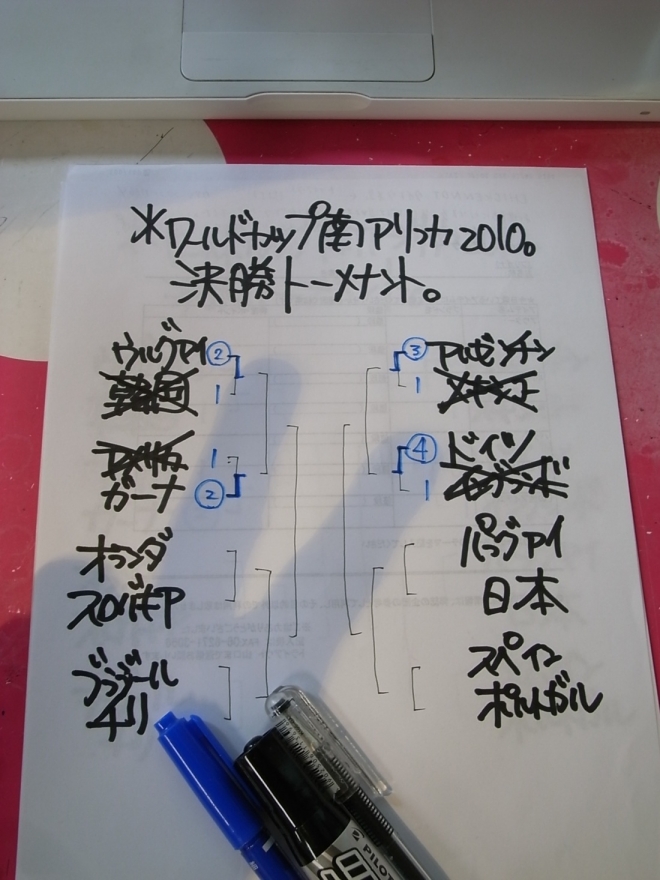 ※ワールドカップ南アフリカ2010。
決勝トーメナント。
ウルグアイ ②
韓国 1
アメリカ 1
ガーナ ②
オランダ
スロバキア
ブラジール
チリ
③ アルゼンチン
1 メキシコ
④ ドイツ
1 イングランド
パラグアイ
日本
スペイン
ポルトガル
PILOT